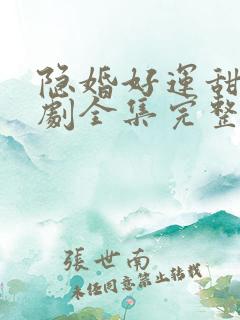 隐婚好運甜
劇全集完整
張世南
未经同意禁止转载